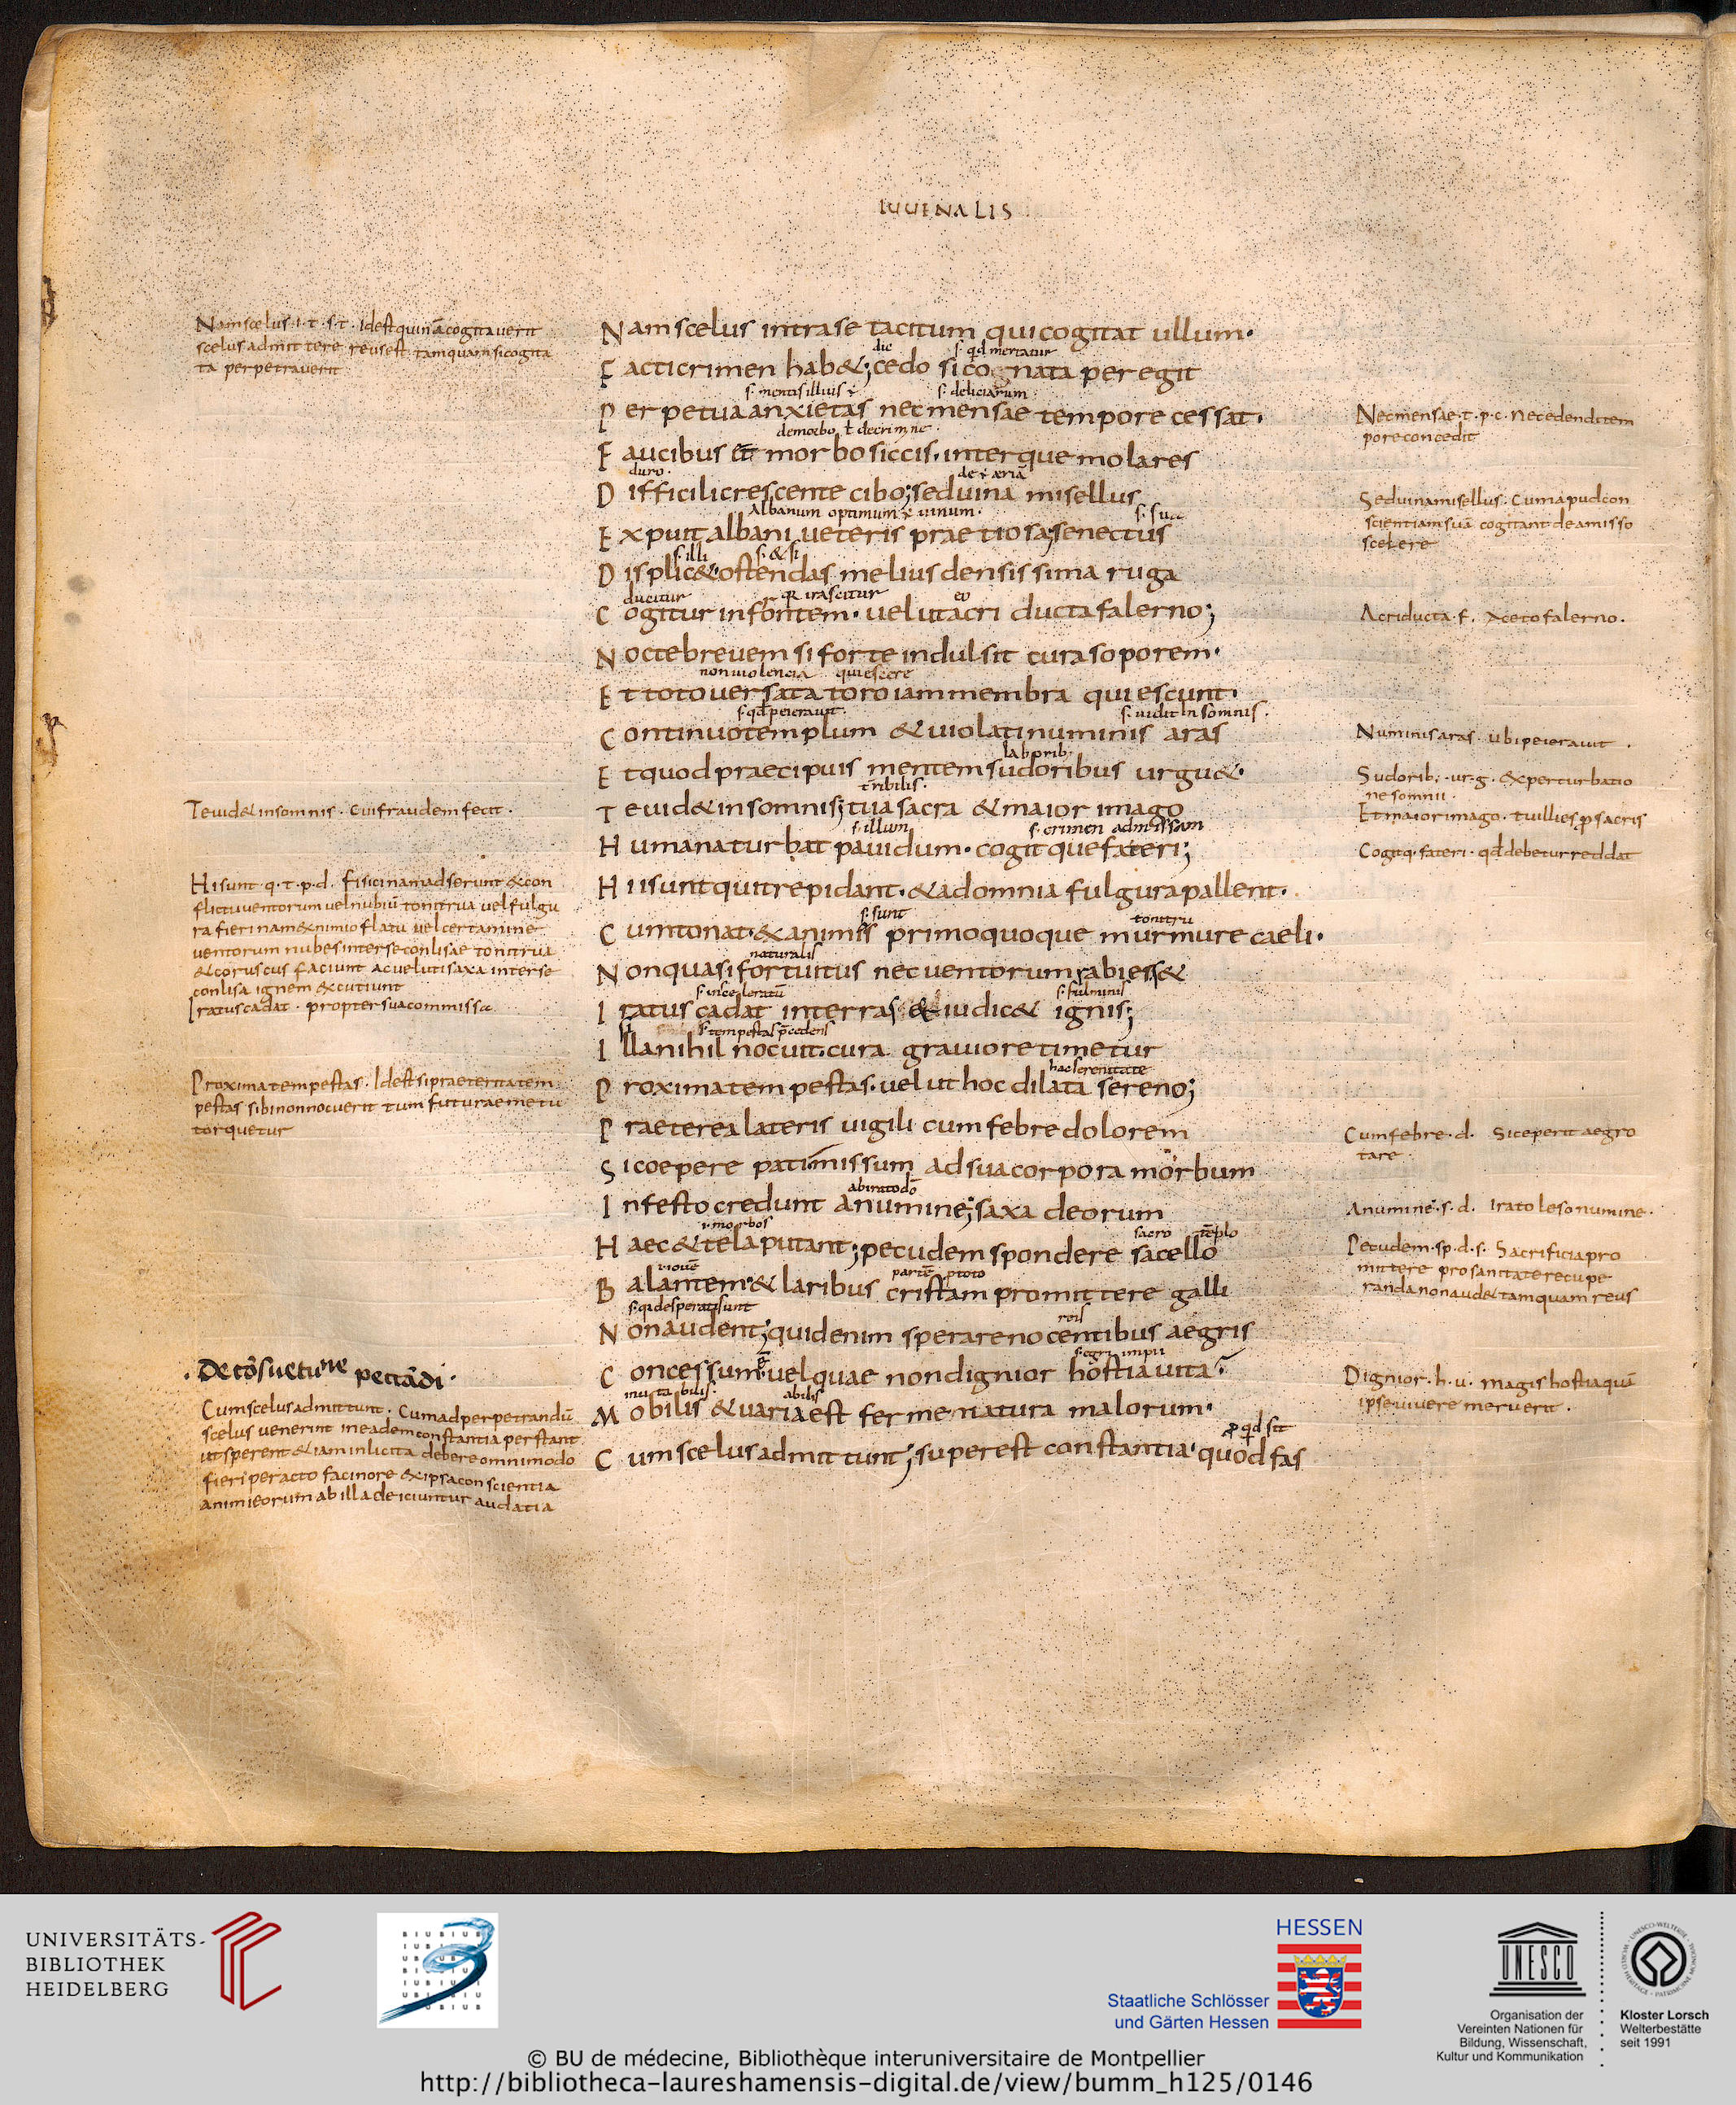 IUUENALIS
Nam scelus·i·t·s·t· Idest qui nā cogitauerit
scelus admittere reus est tamquam si cogita
ta perpetrauerit
Teuid& insomnis· Cui fraudem fecit·
Hi sunt·q·t·p·d· Fisici nam adserunt & con
flictu uentorum uel nubiū tonitrua uel fulgu
ra fieri nam & nimio flatu uel certamine
uentorum nubes inter se conlisae tonitrua
& coruscus faciunt ac ueluti saxa inter se
conlisa ignem excutiunt
Iratus cadat· propter sua commissa
Proxima tempestas· Idest si praeterita tem
pestas sibi non nocuerit tum futurae metu
torquetur
·De cōsuetune peccādi·
Cum scelus admittunt· Cum ad perpetrandū
scelus uenerint in eadem constantia perstant
ut sperent & iam inlicita debere omnimodo
fieri peracto facinore & ipsa conscientia
animi eorum ab illa deiciuntur audatia
Nam scelus intra se tacitum qui cogitat ullum·
dic s· qđ meriatur
Facti crimen hab&; cedo si cognata peregit
s· mentis illius ÷ s· deliciarum
Perpetua anxietas nec mensae tempore cessat·
de morbo ł de crimine·
Faucibus et morbo siccis· interque molares
duro·
Difficili crescente cibo; sed uina misellus
Albanum optimum ÷ uinum· s· sua
Expuit albani ueteris praetiosa; senectus
s· illi s· & si
Displic&· ostendas melius densissima ruga
ducitur qr irascitur eo
Cogitur in fontem· uelut acri ducta falerno;
Nocte breuem si forte indulsit cura soporem·
non uiolencia quiescere
Et toto uersata toro iam membra quiescunt·
s· qđ peierauit· s· uidit in somnis·
Continuo templum & uiolati numinis aras
laborib;
Et quod praecipuis mentem sudoribus urgu&·
tribilis·
Te uid& in somnis; tua sacra & maior imago
s· illum s· crimen admissam
Humana turbat pauidum· cogitque fateri;
Hii sunt qui trepidant· & ad omnia fulgura pallent·
s· sunt tonitru
Cum tonat· & animis primo quoque murmure caeli·
naturalis
Non quasi fortuitus nec uentorum rabies s&
s· in sceleratū s· fulminis
Iratus cadat in terras & iudic& ignis;
si s· tempestas p̄cedens
Illa nihil nocuit· cura grauiore timetur
hac serenitate
Proxima tempestas· uelut hoc dilata sereno;
Praeterea lateris uigili cum febre dolorem
Si coepere pati· missum ad sua corpora morbum
ab irato dō
Infesto credunt a numine; saxa deorum
i· morbos sacro tēplo
Haec & tela putant; pecudem spondere sacello
i· ouē partē p toto
Balantem & laribus cristam promittere galli
s· qi desperati sunt reis
Non audent; quid enim sperare nocentibus aegris
s· egri impii
Concessum· uel quae non dignior hostia uita·
mutabilis· abilis
Mobilis & uaria est ferme natura malorum·
p qđ sit
Cum scelus admittunt; superest constantia· quod fas
Nec mensae·t·p·c· Nec edendi tem
pore concedit
Sed uina misellus· Cum apud con
scientiam suā cogitant de amisso
scelere
Acri ducta·f· Aceto falerno·
Numinis aras ubi peierauit·
Sudorib;·ur·g· ex perturbatio
ne somnii·
Et maior imago· tuillies p sacris
Cogitq· fateri· qđ debetur reddat
Cum febre·d· Si ceperit aegro
tare·
A numine·s·d· Irato leso numine·
Pecudem·sp·d·s· Sacrificia pro
mittere pro sanitate recupe
randa non aud& tamquam reus
Dignior·h·u· magis hostia quā
ipse uiuere meruerit·
UNIVERSITÄTS-
BIBLIOTHEK
HEIDELBERG
HESSEN
Staatliche Schlösser
und Gärten Hessen
UNESCO
Organisation der
Vereinten Nationen für
Bildung, Wissenschaft,
Kultur und Kommunikation
Kloster Lorsch
Welterbestätte
seit 1991
© BU de médecine, Bibliothèque interuniversitaire de Montpellier
http://bibliotheca-laureshamensis-digital.de/view/bumm_h125/0146